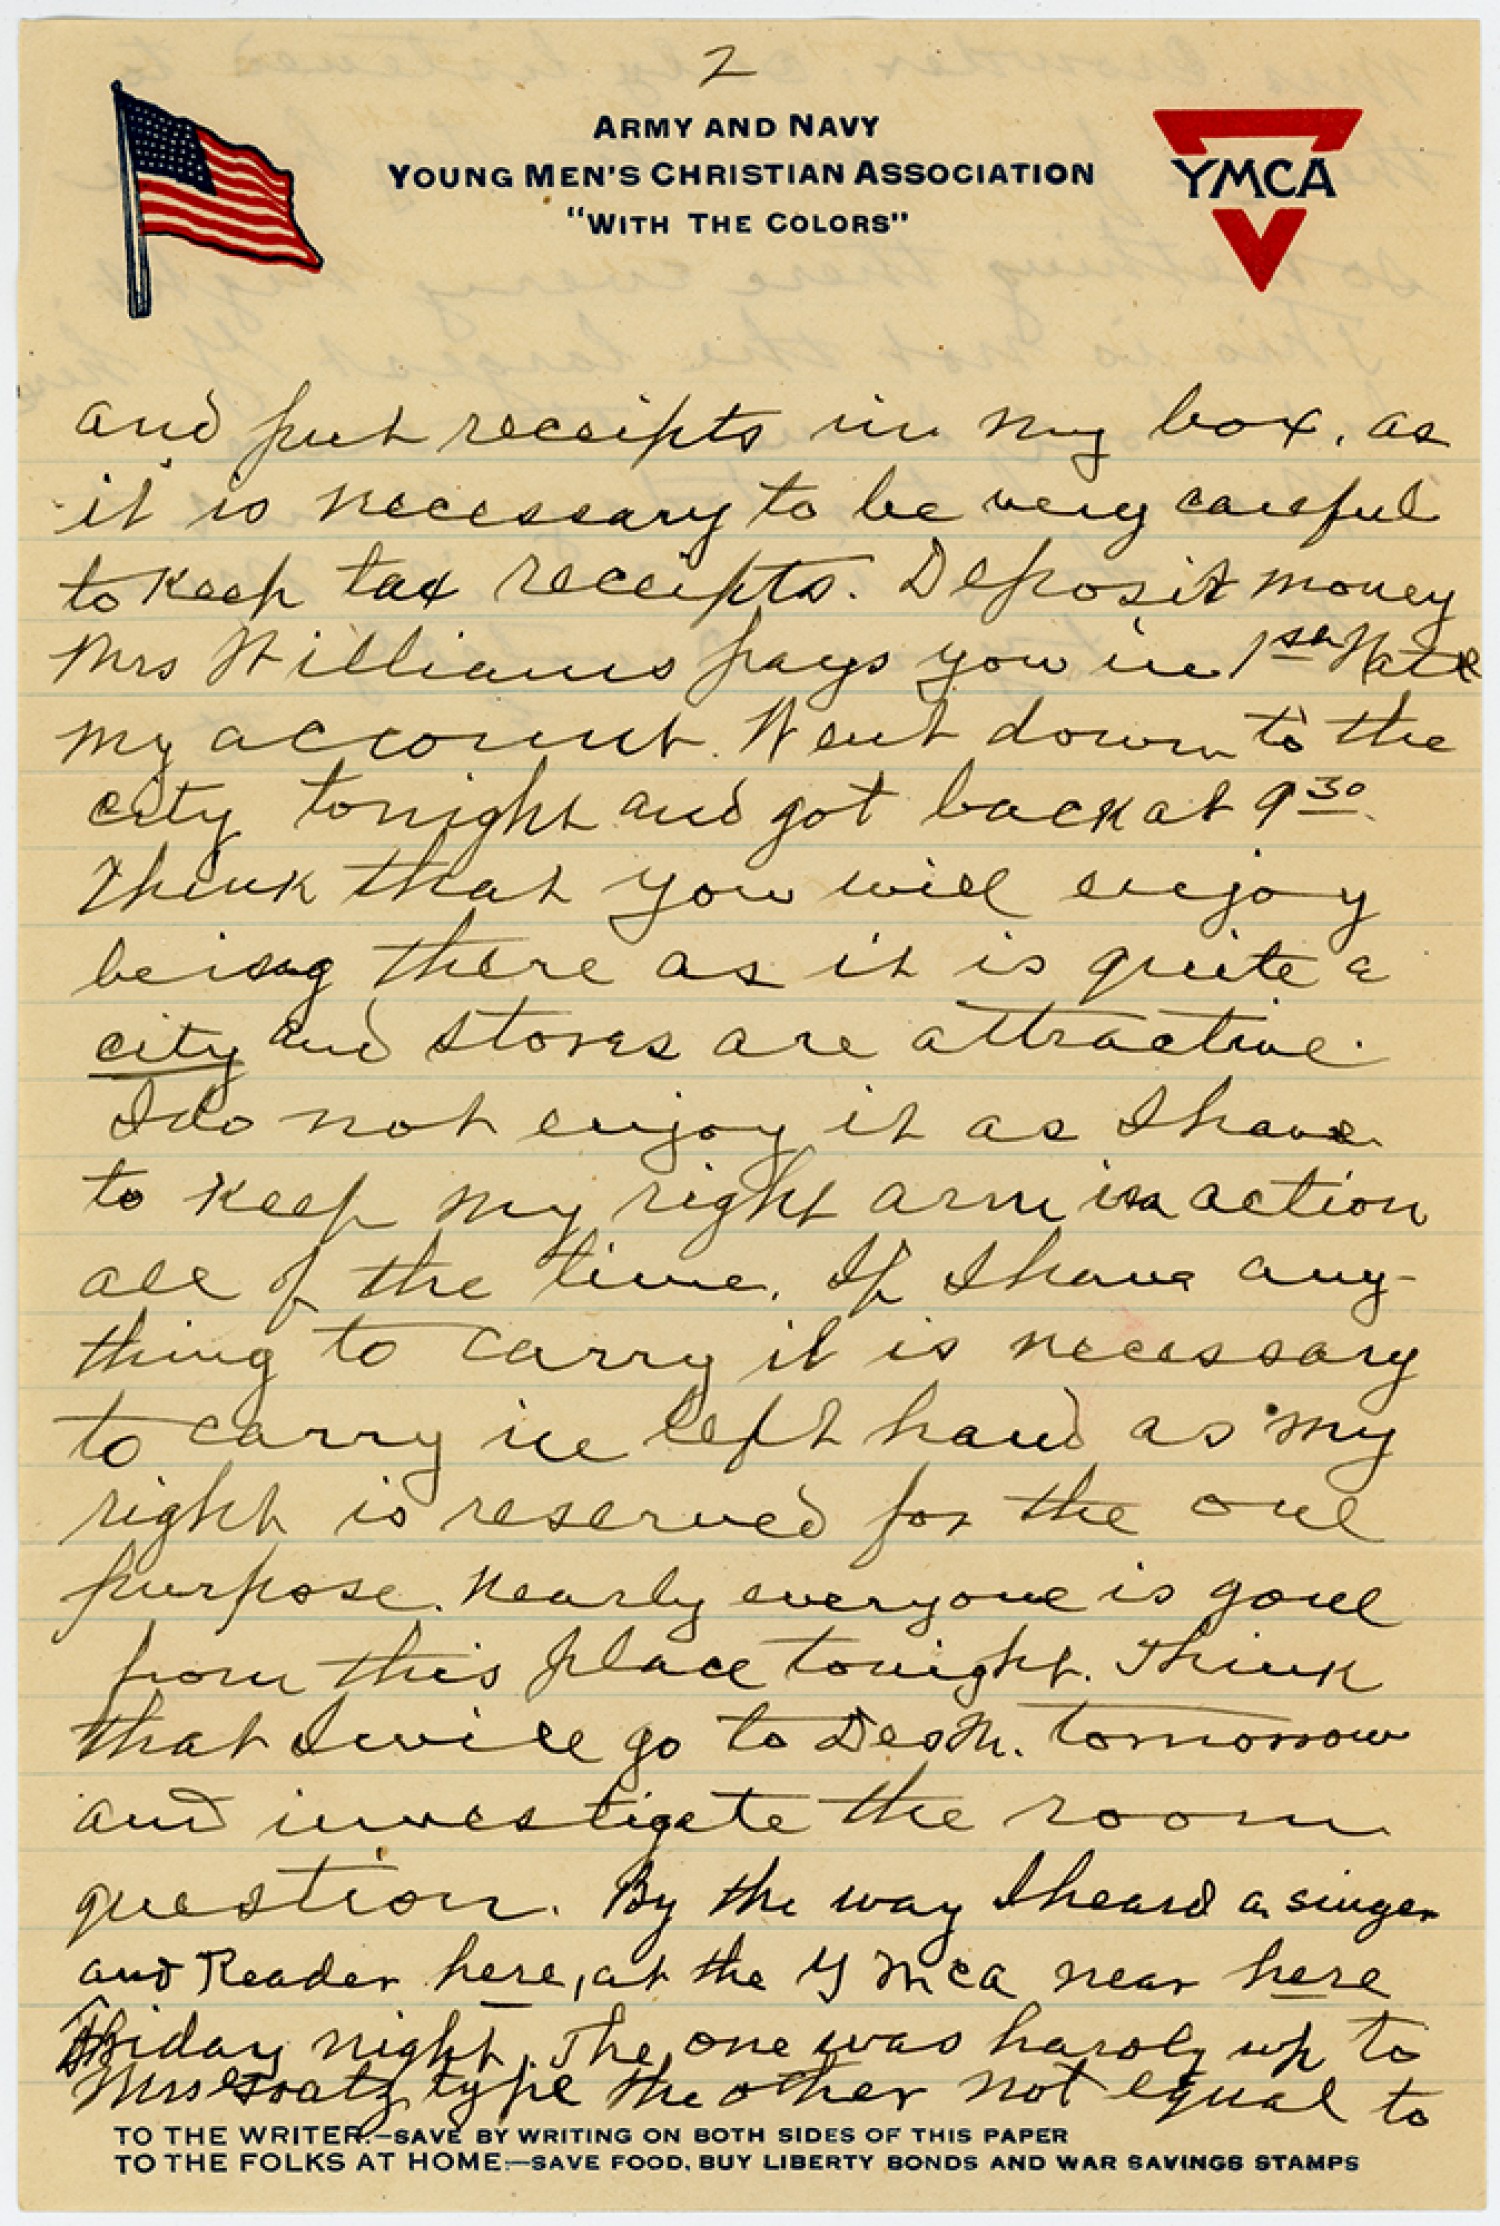 2
ARMY AND NAVY
YOUNG MEN'S CHRISTIAN ASSOCIATION
"WITH THE COLORS"
YMCA
and put receipts in my box, as
it is necessary to be very careful
to keep tax receipts. Deposit money
Mrs Williams pays you in 1st Natl
my account. Went down to the
city tonight and got back at 9 30.
Think that you will enjoy
being there as it is quite a
city and stores are attractive.
I do not enjoy it as I have
to keep my right arm in action
all of the time. If I have any-
thing to carry it is necessary
to carry in left hand as my
right is reserved for the one
purpose. Nearly everyone is gone
from this place tonight. Think
that I will go to Des M. tomorrow
and investigate the room
question. By the way I heard a singer
and Reader here, at the Y M C A near here
Friday night. The one was hardly up to
Mrs type the other not equal to
TO THE WRITER:—SAVE BY WRITING ON BOTH SIDES OF THIS PAPER
TO THE FOLKS AT HOME:—SAVE FOOD, BUY LIBERTY BONDS AND WAR SAVINGS STAMPS